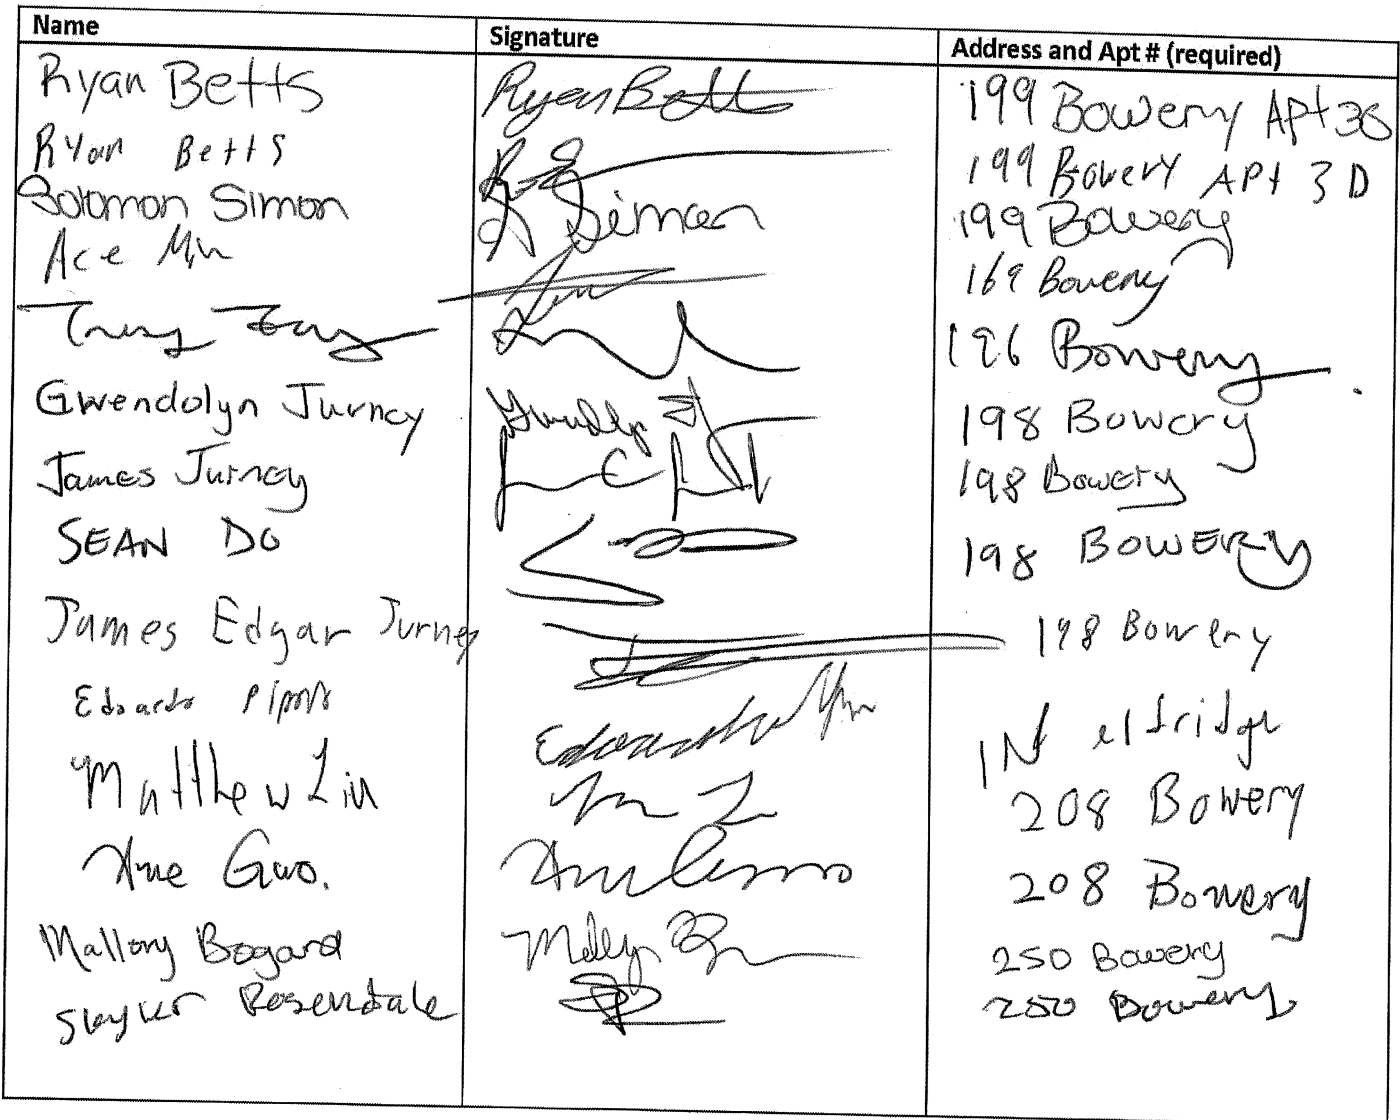 Name Signature Address and Apt # (required)
Ryan Betts Ryan Betts 199 Bowery Apt 3G
Ryan Betts 199 Bowery APt 3 D
Solomon Simon S Simon 199 Bowery
Ace Min 169 Bowery
196 Bowery
Gwendolyn Jurney 198 Bowery
James Jurney 198 Bowery
SEAN DO 198 BOWERY
James Edgar Jurney 198 Bowery
Edoardo Edoardo eldridge
Matthew Liu 208 Bowery
Xue Guo. 208 Bowery
Mallory Bogard 250 Bowery
Rosendale 250 Bowery